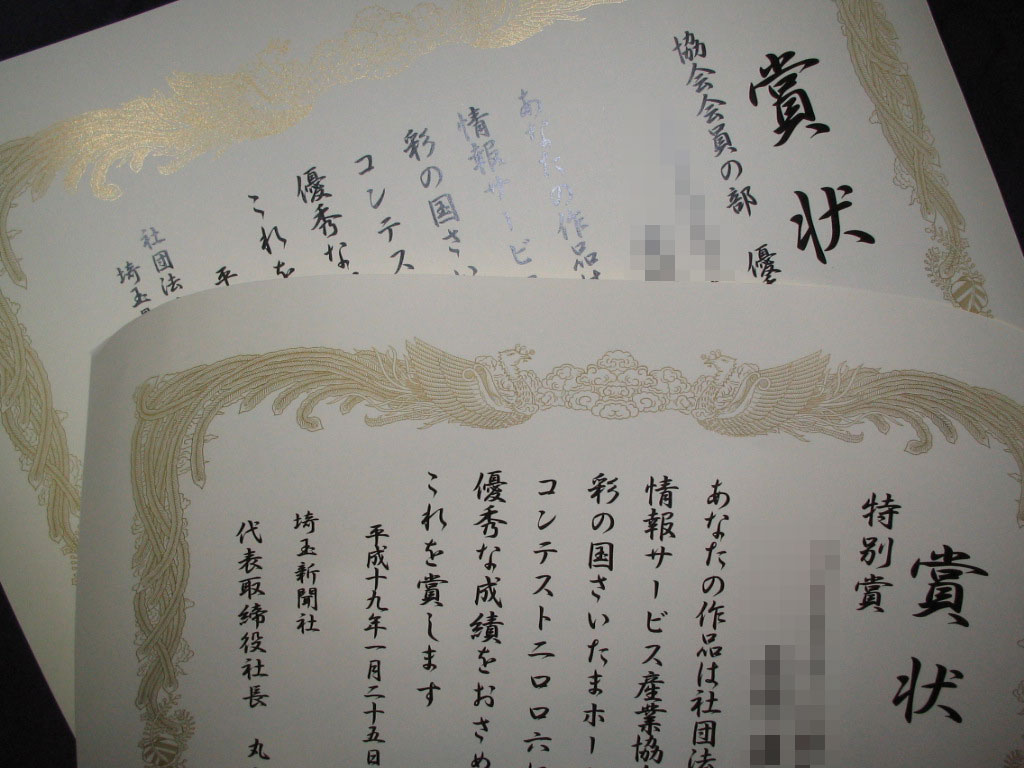 賞状
協会会員の部
優
あなたの作品は
情報サービ
彩の国さい
コンテス
優秀な
これを
平
社団法
埼玉
賞状
特別賞
あなたの作品は社団法
情報サービス産業協
彩の国さいたまホー
コンテスト二〇〇六に
優秀な成績をおさめ
これを賞します
平成十九年一月二十五日
埼玉新聞社
代表取締役社長 丸